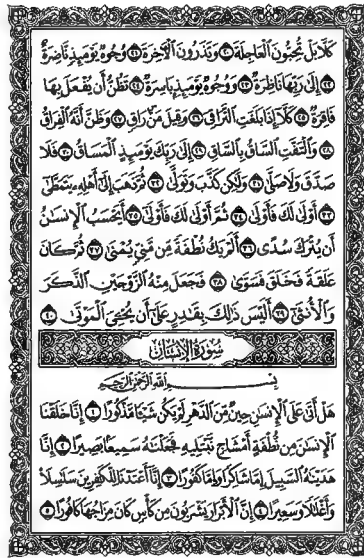 كَلَّا بَلْ تُحِبُّونَ ٱلْعَاجِلَةَ ٢٠ وَتَذَرُونَ ٱلْءَاخِرَةَ ٢١ وُجُوهٌ يَوْمَئِذٍ نَّاضِرَةٌ
٢٢ إِلَىٰ رَبِّهَا نَاظِرَةٌ ٢٣ وَوُجُوهٌ يَوْمَئِذٍ بَاسِرَةٌ ٢٤ تَظُنُّ أَن يُفْعَلَ بِهَا
فَاقِرَةٌ ٢٥ كَلَّا إِذَا بَلَغَتِ ٱلتَّرَاقِيَ ٢٦ وَقِيلَ مَنْ رَاقٍ ٢٧ وَظَنَّ أَنَّهُ ٱلْفِرَاقُ
٢٨ وَٱلْتَفَّتِ ٱلسَّاقُ بِٱلسَّاقِ ٢٩ إِلَىٰ رَبِّكَ يَوْمَئِذٍ ٱلْمَسَاقُ ٣٠ فَلَا
صَدَّقَ وَلَا صَلَّىٰ ٣١ وَلَٰكِن كَذَّبَ وَتَوَلَّىٰ ٣٢ ثُمَّ ذَهَبَ إِلَىٰ أَهْلِهِۦ يَتَمَطَّىٰ
٣٣ أَوْلَىٰ لَكَ فَأَوْلَىٰ ٣٤ ثُمَّ أَوْلَىٰ لَكَ فَأَوْلَىٰ ٣٥ أَيَحْسَبُ ٱلْإِنسَٰنُ
أَن يُتْرَكَ سُدًى ٣٦ أَلَمْ يَكُ نُطْفَةً مِّن مَّنِىٍّ يُمْنَىٰ ٣٧ ثُمَّ كَانَ
عَلَقَةً فَخَلَقَ فَسَوَّىٰ ٣٨ فَجَعَلَ مِنْهُ ٱلزَّوْجَيْنِ ٱلذَّكَرَ
وَٱلْأُنثَىٰٓ ٣٩ أَلَيْسَ ذَٰلِكَ بِقَٰدِرٍ عَلَىٰٓ أَن يُحْـِۧىَ ٱلْمَوْتَىٰ ٤٠
سُورَةُ الإِنْسَانِ
بِسْمِ ٱللَّهِ ٱلرَّحْمَٰنِ ٱلرَّحِيمِ
هَلْ أَتَىٰ عَلَى ٱلْإِنسَٰنِ حِينٌ مِّنَ ٱلدَّهْرِ لَمْ يَكُن شَيْـًٔا مَّذْكُورًا ١ إِنَّا خَلَقْنَا
ٱلْإِنسَٰنَ مِن نُّطْفَةٍ أَمْشَاجٍ نَّبْتَلِيهِ فَجَعَلْنَٰهُ سَمِيعًۢا بَصِيرًا ٢ إِنَّا
هَدَيْنَٰهُ ٱلسَّبِيلَ إِمَّا شَاكِرًا وَإِمَّا كَفُورًا ٣ إِنَّآ أَعْتَدْنَا لِلْكَٰفِرِينَ سَلَٰسِلَا۟
وَأَغْلَٰلًا وَسَعِيرًا ٤ إِنَّ ٱلْأَبْرَارَ يَشْرَبُونَ مِن كَأْسٍ كَانَ مِزَاجُهَا كَافُورًا ٥